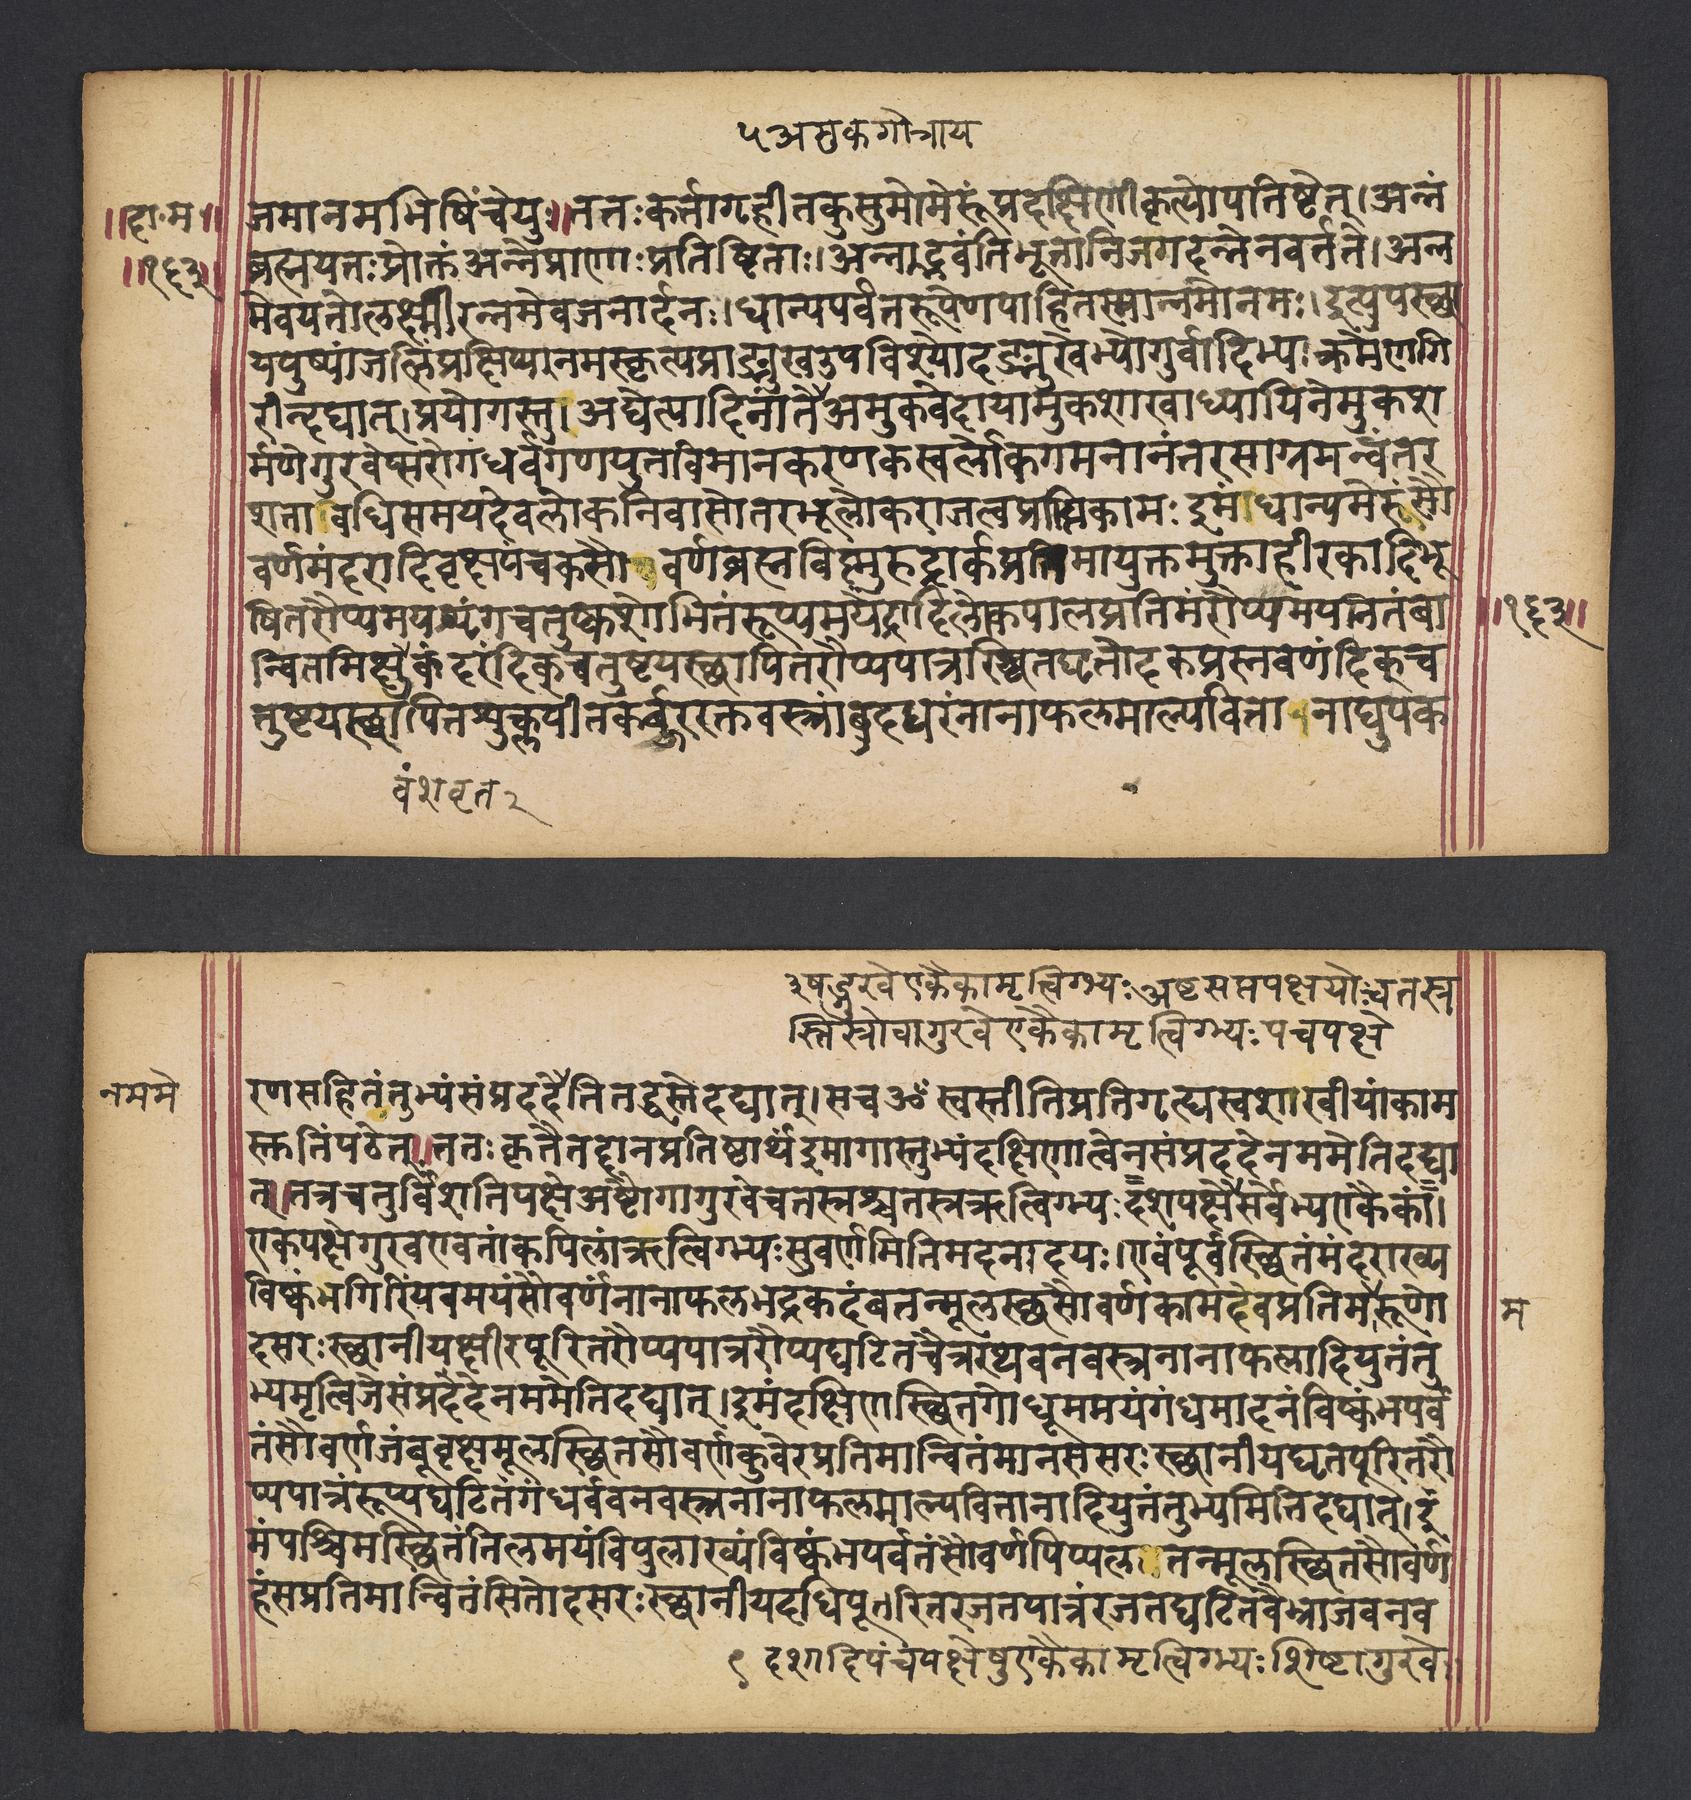 ५ अमुकगोत्राय
॥दा॰म॰॥ जमानमभिषिंचेयुः॥ततःकर्त्तागृहीतकुसुमोमेरुंप्रदक्षिणीकृत्योपतिष्टेत्।अन्नं
॥१६३॥ ब्रह्मयतःप्रोक्तंअन्नेप्राणाःप्रतिष्ठिताः।अन्नाद्भवंतिभूतानिजगदन्नेनवर्त्तते।अन्न
मेवयतोलक्ष्मीरन्नमेवजनार्दनः।धान्यपर्वतरूपेणपाहितस्मान्नमोनमः।इत्युपस्था
यपुष्पांजलिंप्रक्षिप्यनमस्कृत्यप्राङ्मुखउपविश्योदङ्मुखेभ्योगुर्वादिभ्यःक्रमेणगि
रीन्दद्यात्।प्रयोगस्तु।अद्येत्यादिनांतेअमुकवेदायामुकशाखाध्यायिनेमुकश
र्मणेगुरवेप्सरोगंधर्वगणयुतविमानकरणकस्वर्लोकगमनानंतरसाग्रमन्वंतर
शतावधिसमयदेवलोकनिवासोतरभूलोकराजत्वप्राप्तिकामःइमंधान्यमेरुंसौ
वर्णमंदरादिवृक्षपंचकसौवर्णब्रह्मविष्णुरुद्रार्कप्रतिमायुक्तमुक्ताहीरकादिभू
षितरौप्यमयशृंगचतुष्कशोभितंरूप्यमयेंद्रादिलोकपालप्रतिमंरौप्यमयनितंबा
॥१६३॥
न्वितमिक्षुकंदरंदिक्चतुष्टयस्थापितरौप्यपात्रस्थितघृतोदकप्रस्नवणंदिक्च
तुष्टयस्थापितशुक्लपीतकर्बुररक्तवस्त्रांबुदधरंनानाफलमाल्यवितानाद्युपक
वंशवृत २
३षङ्गुरवेएकैकामृत्विग्भ्यःअष्टसप्तपक्षयोश्चतस्र
स्तिस्रोवागुरवेएकैकामृत्विग्भ्यःपंचपक्षे
नममे रणसहितंतुभ्यंसंप्रददेतितद्धस्तेदद्यात्।सचॐस्वस्तीतिप्रतिगृह्यस्वशाखीयांकाम
स्कतिंपठेत्॥ततःकृतैतद्दानप्रतिष्ठार्थंइमागास्तुभ्यंदक्षिणात्वेनसंप्रददेनममेतिदद्या
त्॥तत्रचतुर्विंशतिपक्षेअष्टौगागुरवेचतस्रश्चतस्रऋत्विग्भ्यःदशपक्षेसर्वेभ्यएकैकां।
एकपक्षेगुरवएवतांकपिलांऋत्विग्भ्यःसुवर्णमितिमदनादयः।एवंपूर्वस्थितंमंदराख्य
विष्कंभगिरिंयवमयंसौवर्णनानाफलभद्रकदंबतन्मूलस्थसौवर्णकामदेवप्रतिमरुणो
म
दसरःस्थानीयक्षीरपूरितरौप्यपात्ररौप्यघटितचैत्ररथवनवस्त्रनानाफलादियुतंतु
भ्यमृत्विजेसंप्रददेनममेतिदद्यात्।इमंदक्षिणस्थितगोधूममयंगंधमादनंविष्कंभपर्व
तंसौवर्णजंबूवृक्षमूलस्थितसौवर्णकुवेरप्रतिमान्वितंमानससरःस्थानीयघृतपूरितरौ
प्यपात्रंरूप्यघटितगंधर्ववनवस्त्रनानाफलमाल्यवितानादियुतंतुभ्यमितिदद्यात्।इ
मंपश्चिमस्थितंतिलमयंविपुलाख्यंविष्कंभपर्वतंसौवर्णपिप्पलतन्मूलस्थितसौवर्ण
हंसप्रतिमान्वितंसितोदसरःस्थानीयदधिपूरितरजतपात्रंरजतघटितवैभ्राजवनव
१ दशादिपंचपक्षेषुएकैकामृत्विग्भ्यःशिष्टागुरवे